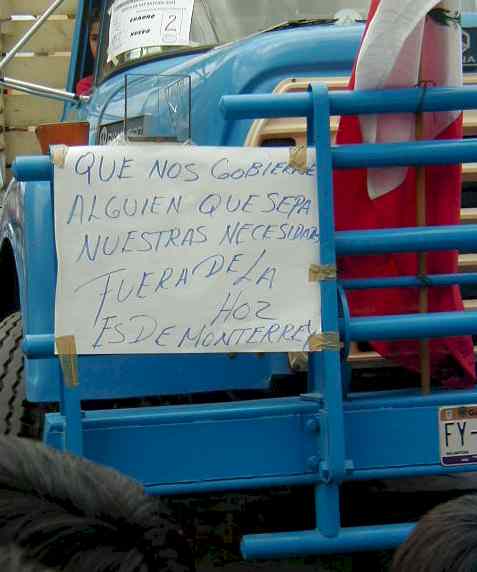 CUADRO
NUEVO
2
QUE NOS GOBIERNE
ALGUIEN QUE SEPA
NUESTRAS NECESIDADES
FUERA DE LA
HOZ
ES DE MONTERREY
FY-